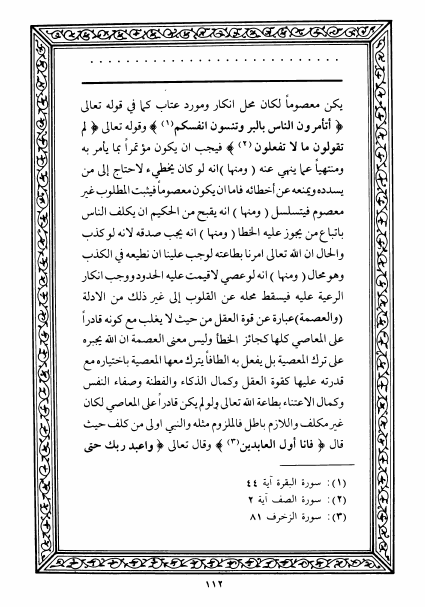 يكن معصوماً لكان محل انكار ومورد عتاب كما في قوله تعالى
﴿ أتأمرون الناس بالبر وتنسون انفسكم (١) ﴾ وقوله تعالى ﴿ لم
تقولون ما لا تفعلون (٢) ﴾ فيجب ان يكون مؤتمراً بما يأمر به
ومنتهياً عما ينهى عنه ( ومنها ) انه لو كان يخطيء لاحتاج إلى من
يسدده ويمنعه عن أخطائه فاما ان يكون معصوماً فيثبت المطلوب غير
معصوم فيتسلسل ( ومنها ) انه يقبح من الحكيم ان يكلف الناس
باتباع من يجوز عليه الخطا ( ومنها ) انه يجب صدقه لانه لو كذب
والحال ان الله تعالى امرنا بطاعته لوجب علينا ان نطيعه في الكذب
وهو محال ( ومنها ) انه لو عصي لاقيمت عليه الحدود ووجب انكار
الرعية عليه فيسقط محله عن القلوب إلى غير ذلك من الادلة
(والعصمة) عبارة عن قوة العقل من حيث لا يغلب مع كونه قادراً
على المعاصي كلها كجائز الخطأ وليس معنى العصمة ان الله يجبره
على ترك المعصية بل يفعل به الطافاً يترك معها المعصية باختياره مع
قدرته عليها كقوة العقل وكمال الذكاء والفطنة وصفاء النفس
وكمال الاعتناء بطاعة الله تعالى ولو لم يكن قادراً على المعاصي لكان
غير مكلف واللازم باطل فالملزوم مثله والنبي اولى من كلف حيث
قال ﴿ فانا أول العابدين (٣) ﴾ وقال تعالى ﴿ واعبد ربك حتى
(١): سورة البقرة آية ٤٤
(٢): سورة الصف آية ٢
(٣): سورة الزخرف ٨١
١١٢